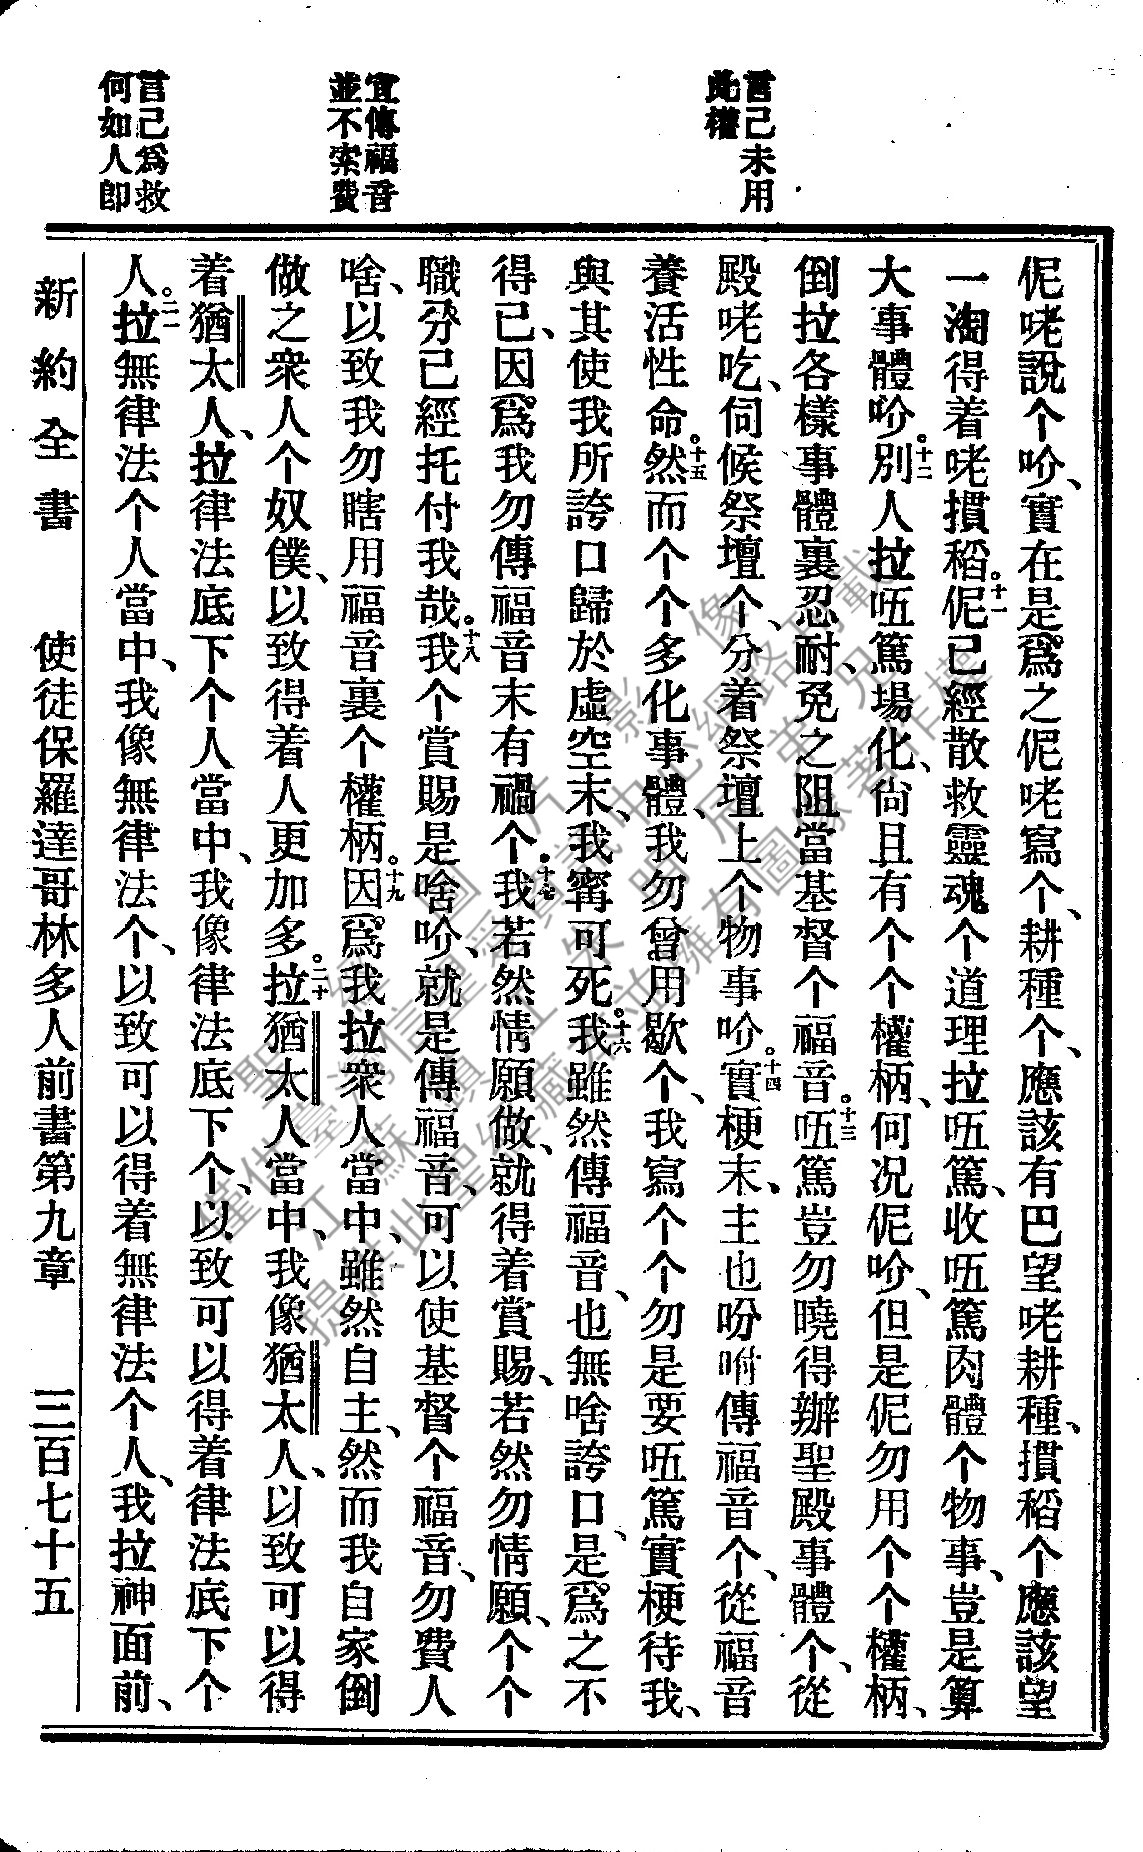 言己未用
此權
宣傳福音
並不索費
言己爲救
何如人即
伲咾說个吤、實在是爲之伲咾寫个、耕種个、應該有巴望咾耕種、摜稻个應該望
一淘得着咾摜稻。十一伲已經散救靈魂个道理拉㕶篤、收㕶篤肉體个物事、豈是算
大事體吤。十二別人拉㕶篤場化、尙且有个个權柄、何况伲吤、但是伲勿用个个權柄、
倒拉各樣事體裏忍耐、免之阻當基督个福音。十三㕶篤豈勿曉得辦聖殿事體个、從
殿咾吃、伺候祭壇个、分着祭壇上个物事吤。十四實梗末、主也吩咐傳福音个、從福音
養活性命。十五然而个个多化事體、我勿曾用歇个、我寫个个勿是要㕶篤實梗待我、
與其使我所誇口歸於虛空末、我寗可死。十六我雖然傳福音、也無啥誇口、是爲之不
得已、因爲我勿傳福音末有禍个。十七我若然情願做、就得着賞賜、若然勿情願、个个
職分已經托付我哉。十八我个賞賜是啥吤、就是傳福音、可以使基督个福音、勿費人
啥、以致我勿瞎用福音裏个權柄。十九因爲我拉衆人當中、雖然自主、然而我自家倒
做之衆人个奴僕、以致得着人更加多。二十拉猶太人當中、我像猶太人、以致可以得
着猶太人、拉律法底下个人當中、我像律法底下个、以致可以得着律法底下个
人。二一拉無律法个人當中、我像無律法个、以致可以得着無律法个人、我拉神面前、
新約全書　使徒保羅達哥林多人前書第九章　三百七十五